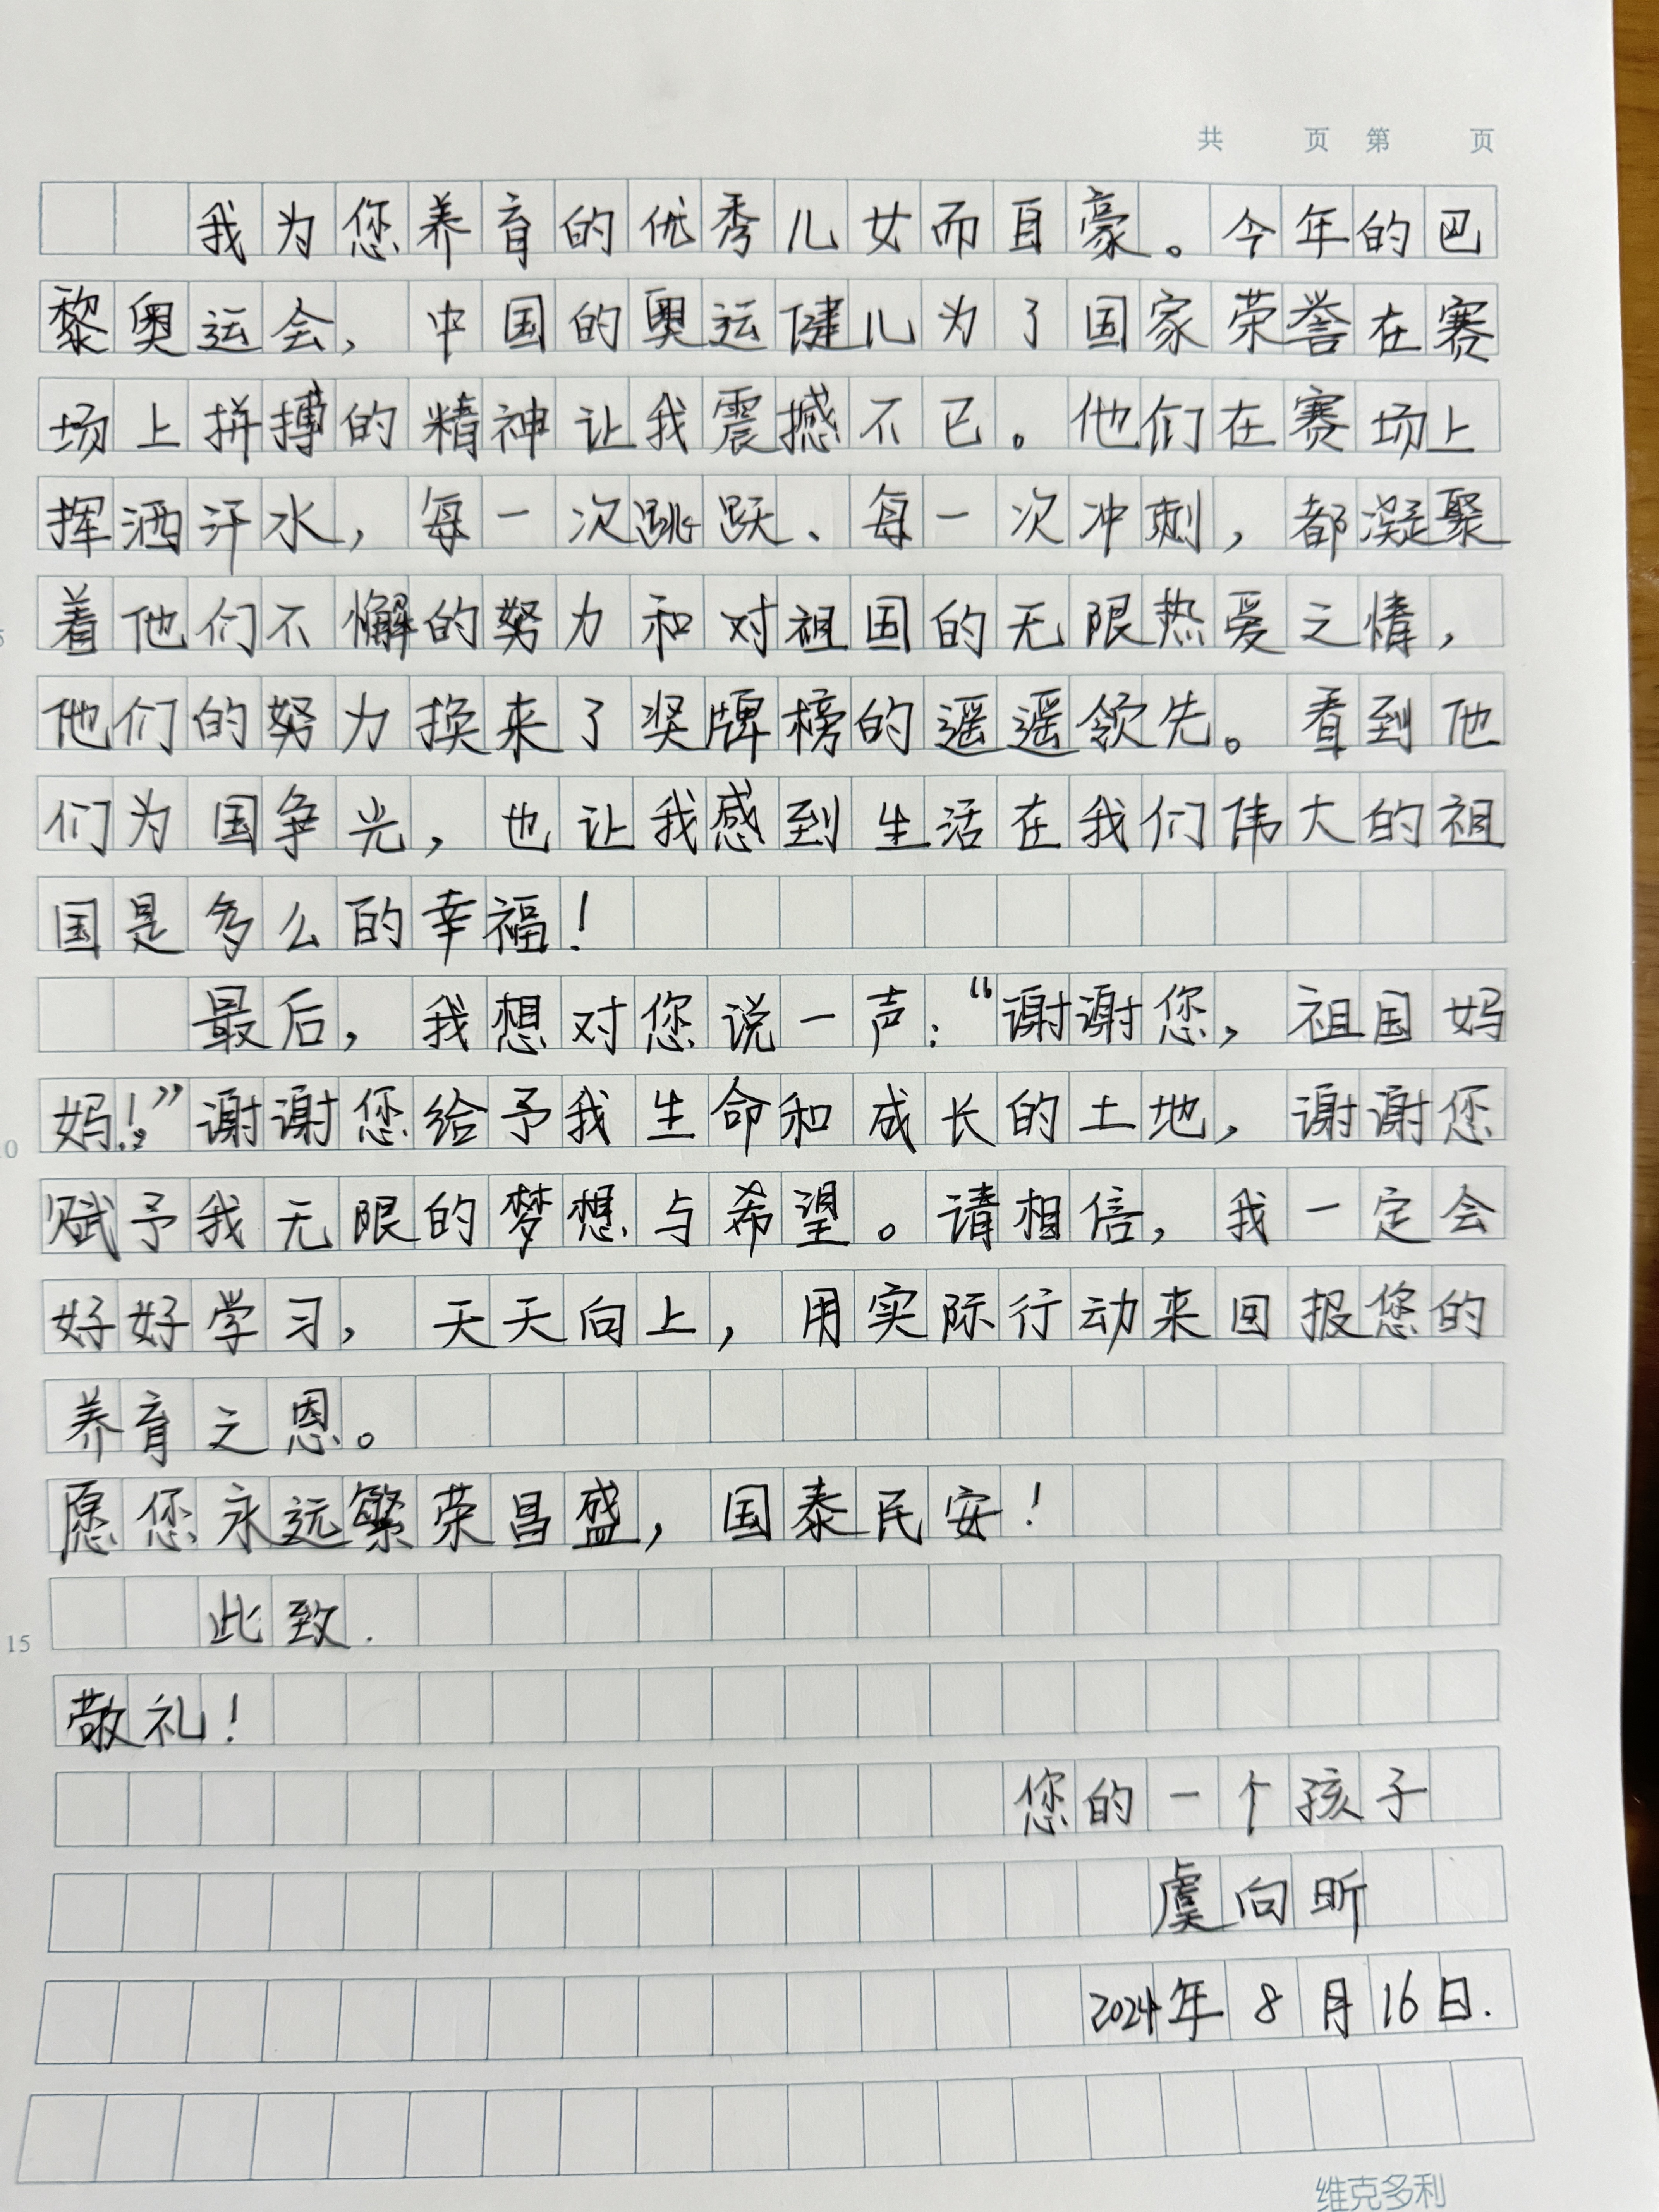 共 页 第 页
我为您养育的优秀儿女而自豪。今年的巴
黎奥运会，中国的奥运健儿为了国家荣誉在赛
场上拼搏的精神让我震撼不已。他们在赛场上
挥洒汗水，每一次跳跃、每一次冲刺，都凝聚
着他们不懈的努力和对祖国的无限热爱之情，
5
他们的努力换来了奖牌榜的遥遥领先。看到他
们为国争光，也让我感到生活在我们伟大的祖
国是多么的幸福！
最后，我想对您说一声：“谢谢您，祖国妈
妈！”谢谢您给予我生命和成长的土地，谢谢您
10
赋予我无限的梦想与希望。请相信，我一定会
好好学习，天天向上，用实际行动来回报您的
养育之恩。
愿您永远繁荣昌盛，国泰民安！
此致.
15
敬礼！
您的一个孩子
虞向昕
2024年8月16日.
维克多利